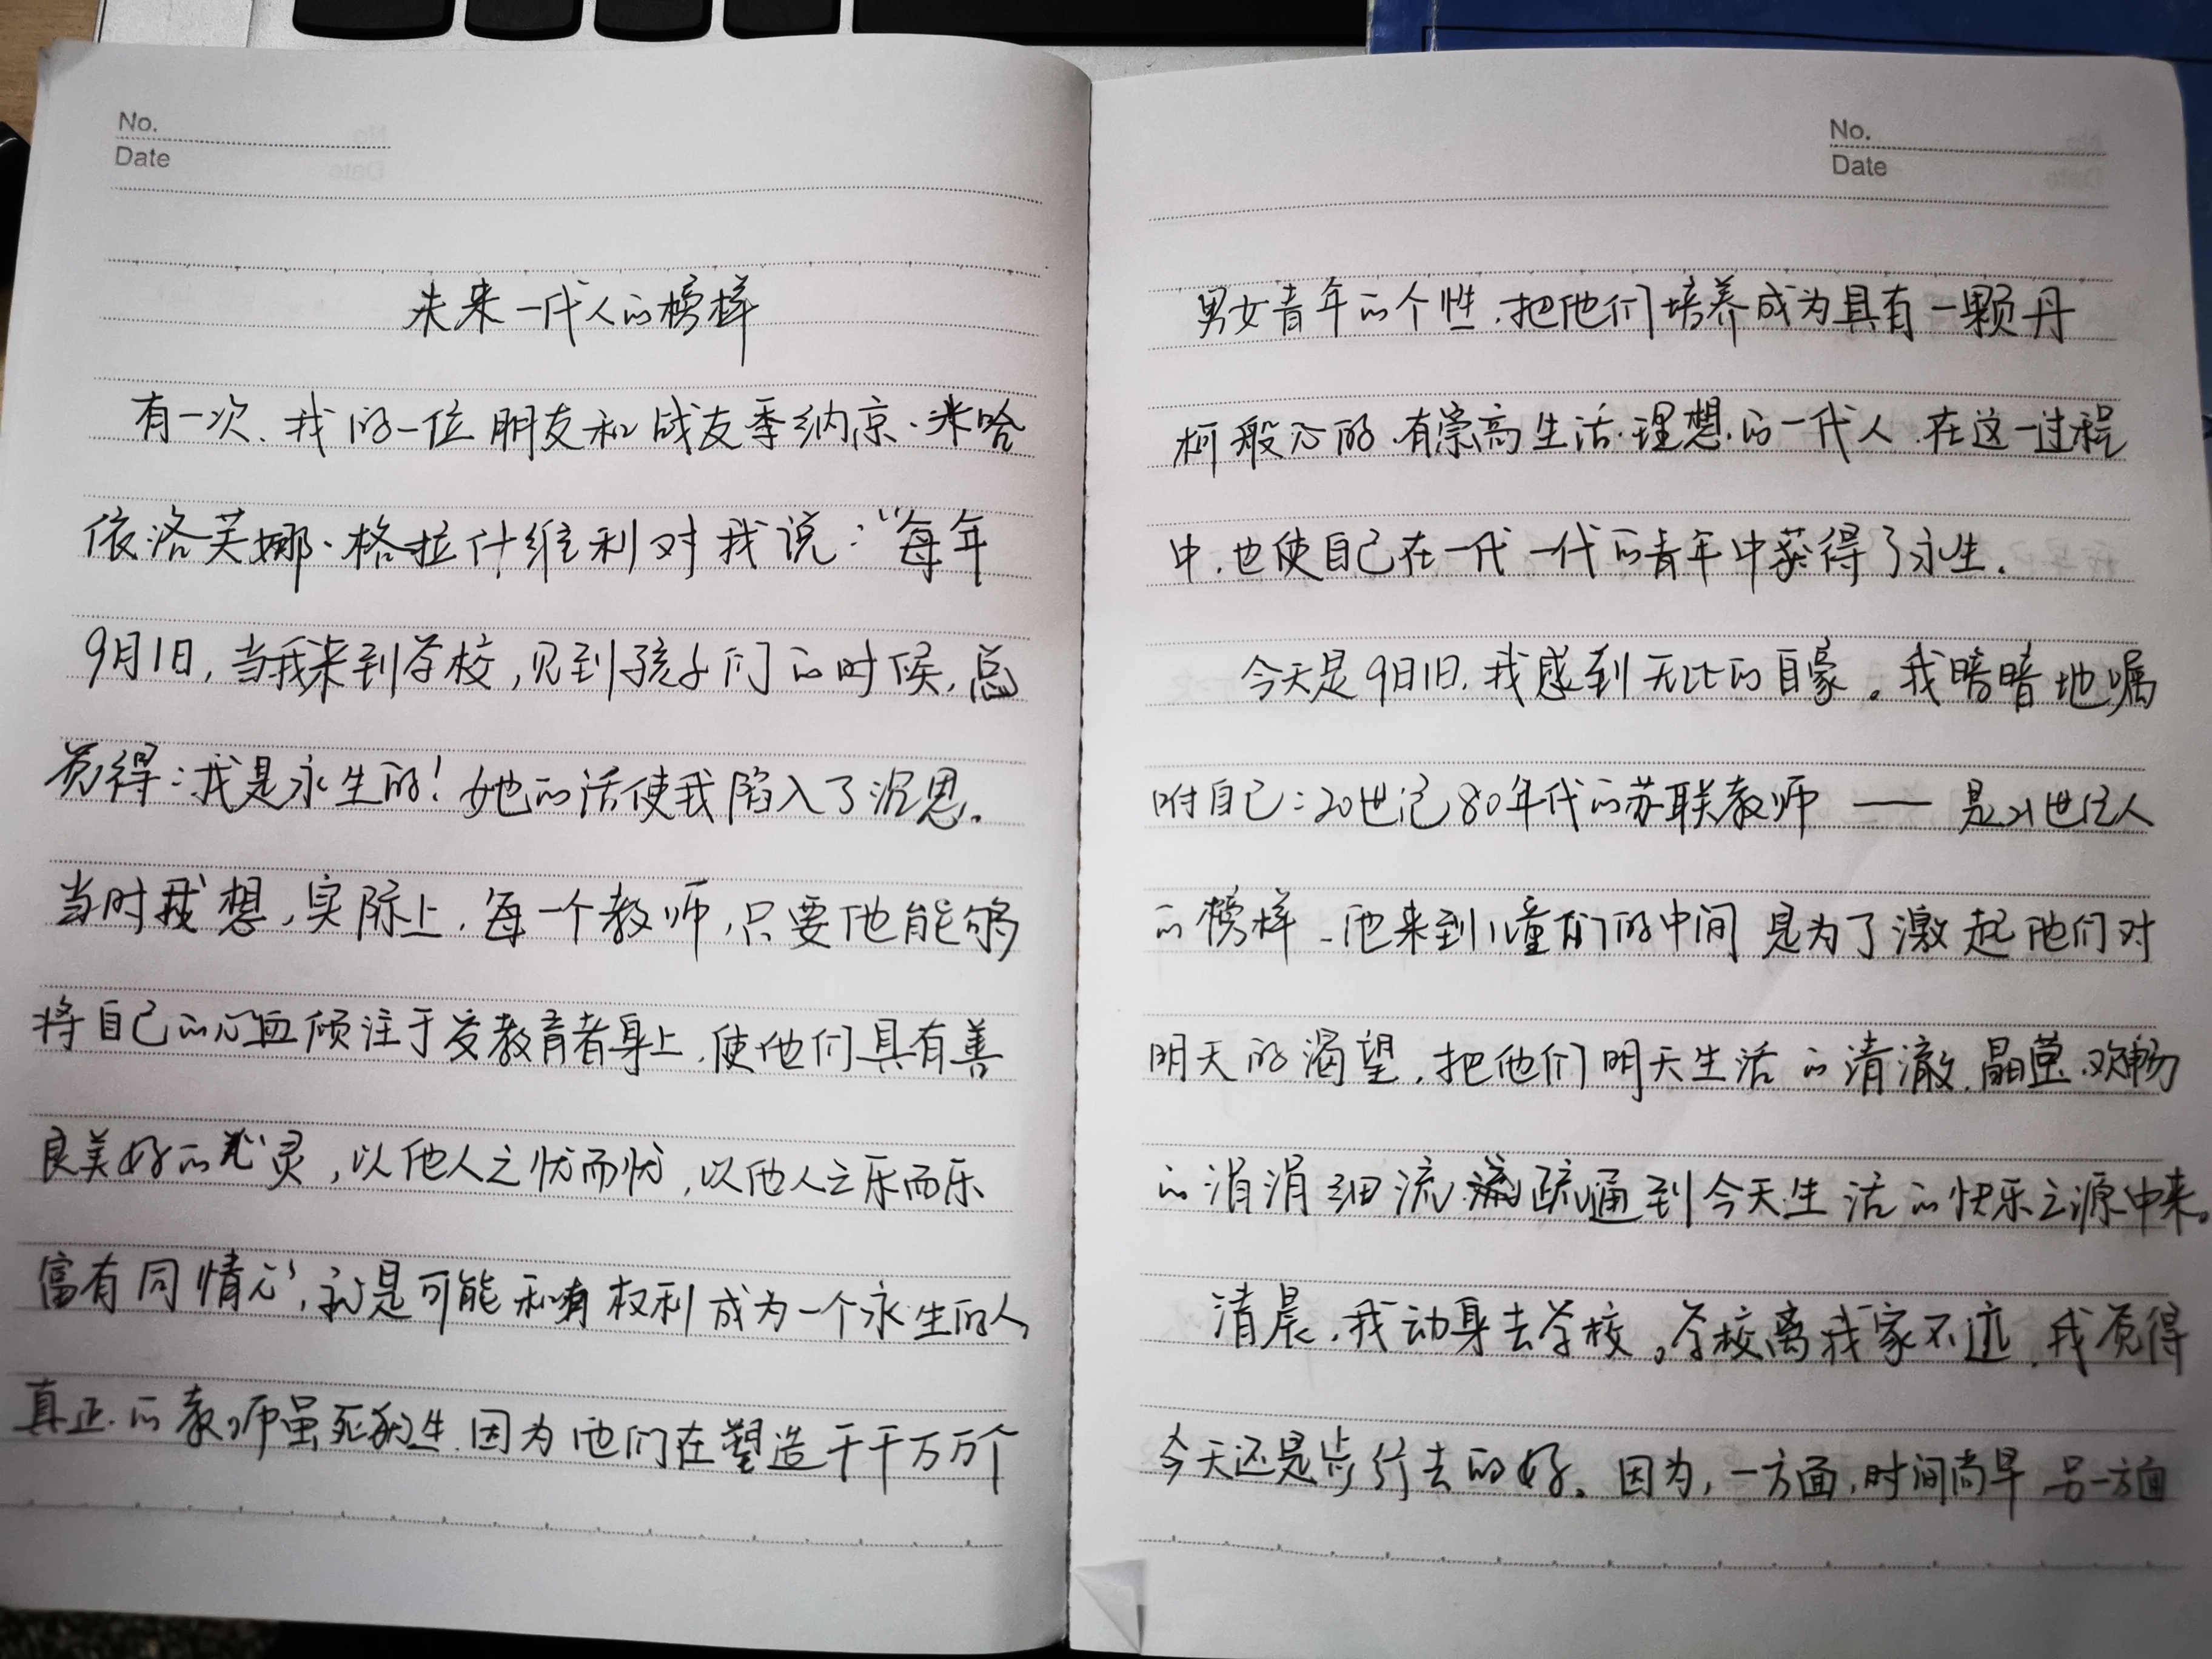 No.
Date
未来一代人的榜样
有一次、我的一位朋友和战友季纳京·米哈
依洛芙娜·格拉什维利对我说："每年
9月1日,当我来到学校,见到孩子们的时候,总
觉得:我是永生的!她的话使我陷入了沉思.
当时我想,实际上,每一个教师,只要他能够
将自己的心血倾注于受教育者身上,使他们具有善
良美好的心灵,以他人之忧而忧,以他人之乐而乐
富有同情心,就是可能和有权利成为一个永生的人,
真正的教师虽死犹生.因为他们在塑造千千万万个
No.
Date
男女青年的个性.把他们培养成为具有一颗丹
柯般心的.有崇高生活理想的一代人.在这一过程
中.也使自己在一代一代的青年中获得了永生.
今天是9月1日.我感到无比的自豪。我暗暗地嘱
咐自己:20世纪80年代的苏联教师——是21世纪人
的榜样.他来到儿童们的中间是为了激起他们对
明天的渴望.把他们明天生活的清澈.晶莹.欢畅
的涓涓细流疏通到今天生活的快乐之源中来。
清晨.我动身去学校。学校离我家不远.我觉得
今天还是步行去的好。因为,一方面,时间尚早 另一方面